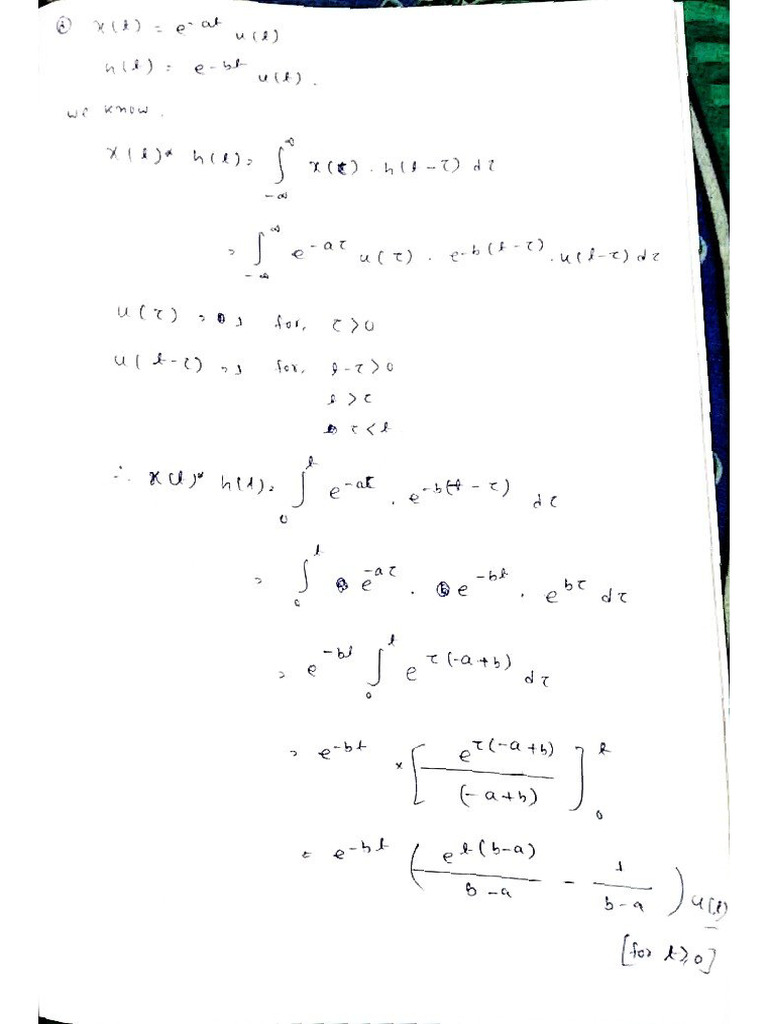 ⓘ x(t) = e^{-at} u(t)
h(t) = e^{-bt} u(t).
we know.
x(t)* h(t) = ∫_{-∞}^{∞} x(τ) . h(t-τ) dτ
= ∫_{-∞}^{∞} e^{-aτ} u(τ) . e^{-b(t-τ)} . u(t-τ) dτ
u(τ) = 1 for, τ>0
u(t-τ) = 1 for, t-τ>0
t>τ
τ<t
∴ x(t)* h(t) = ∫_{0}^{t} e^{-aτ} . e^{-b(t-τ)} dτ
= ∫_{0}^{t} e^{-aτ} . e^{-bt} . e^{bτ} dτ
= e^{-bt} ∫_{0}^{t} e^{τ(-a+b)} dτ
= e^{-bt} × [ e^{τ(-a+b)} / (-a+b) ]_{0}^{t}
= e^{-bt} ( e^{t(b-a)} / b-a - 1 / b-a ) u(t)
[for t≥0]